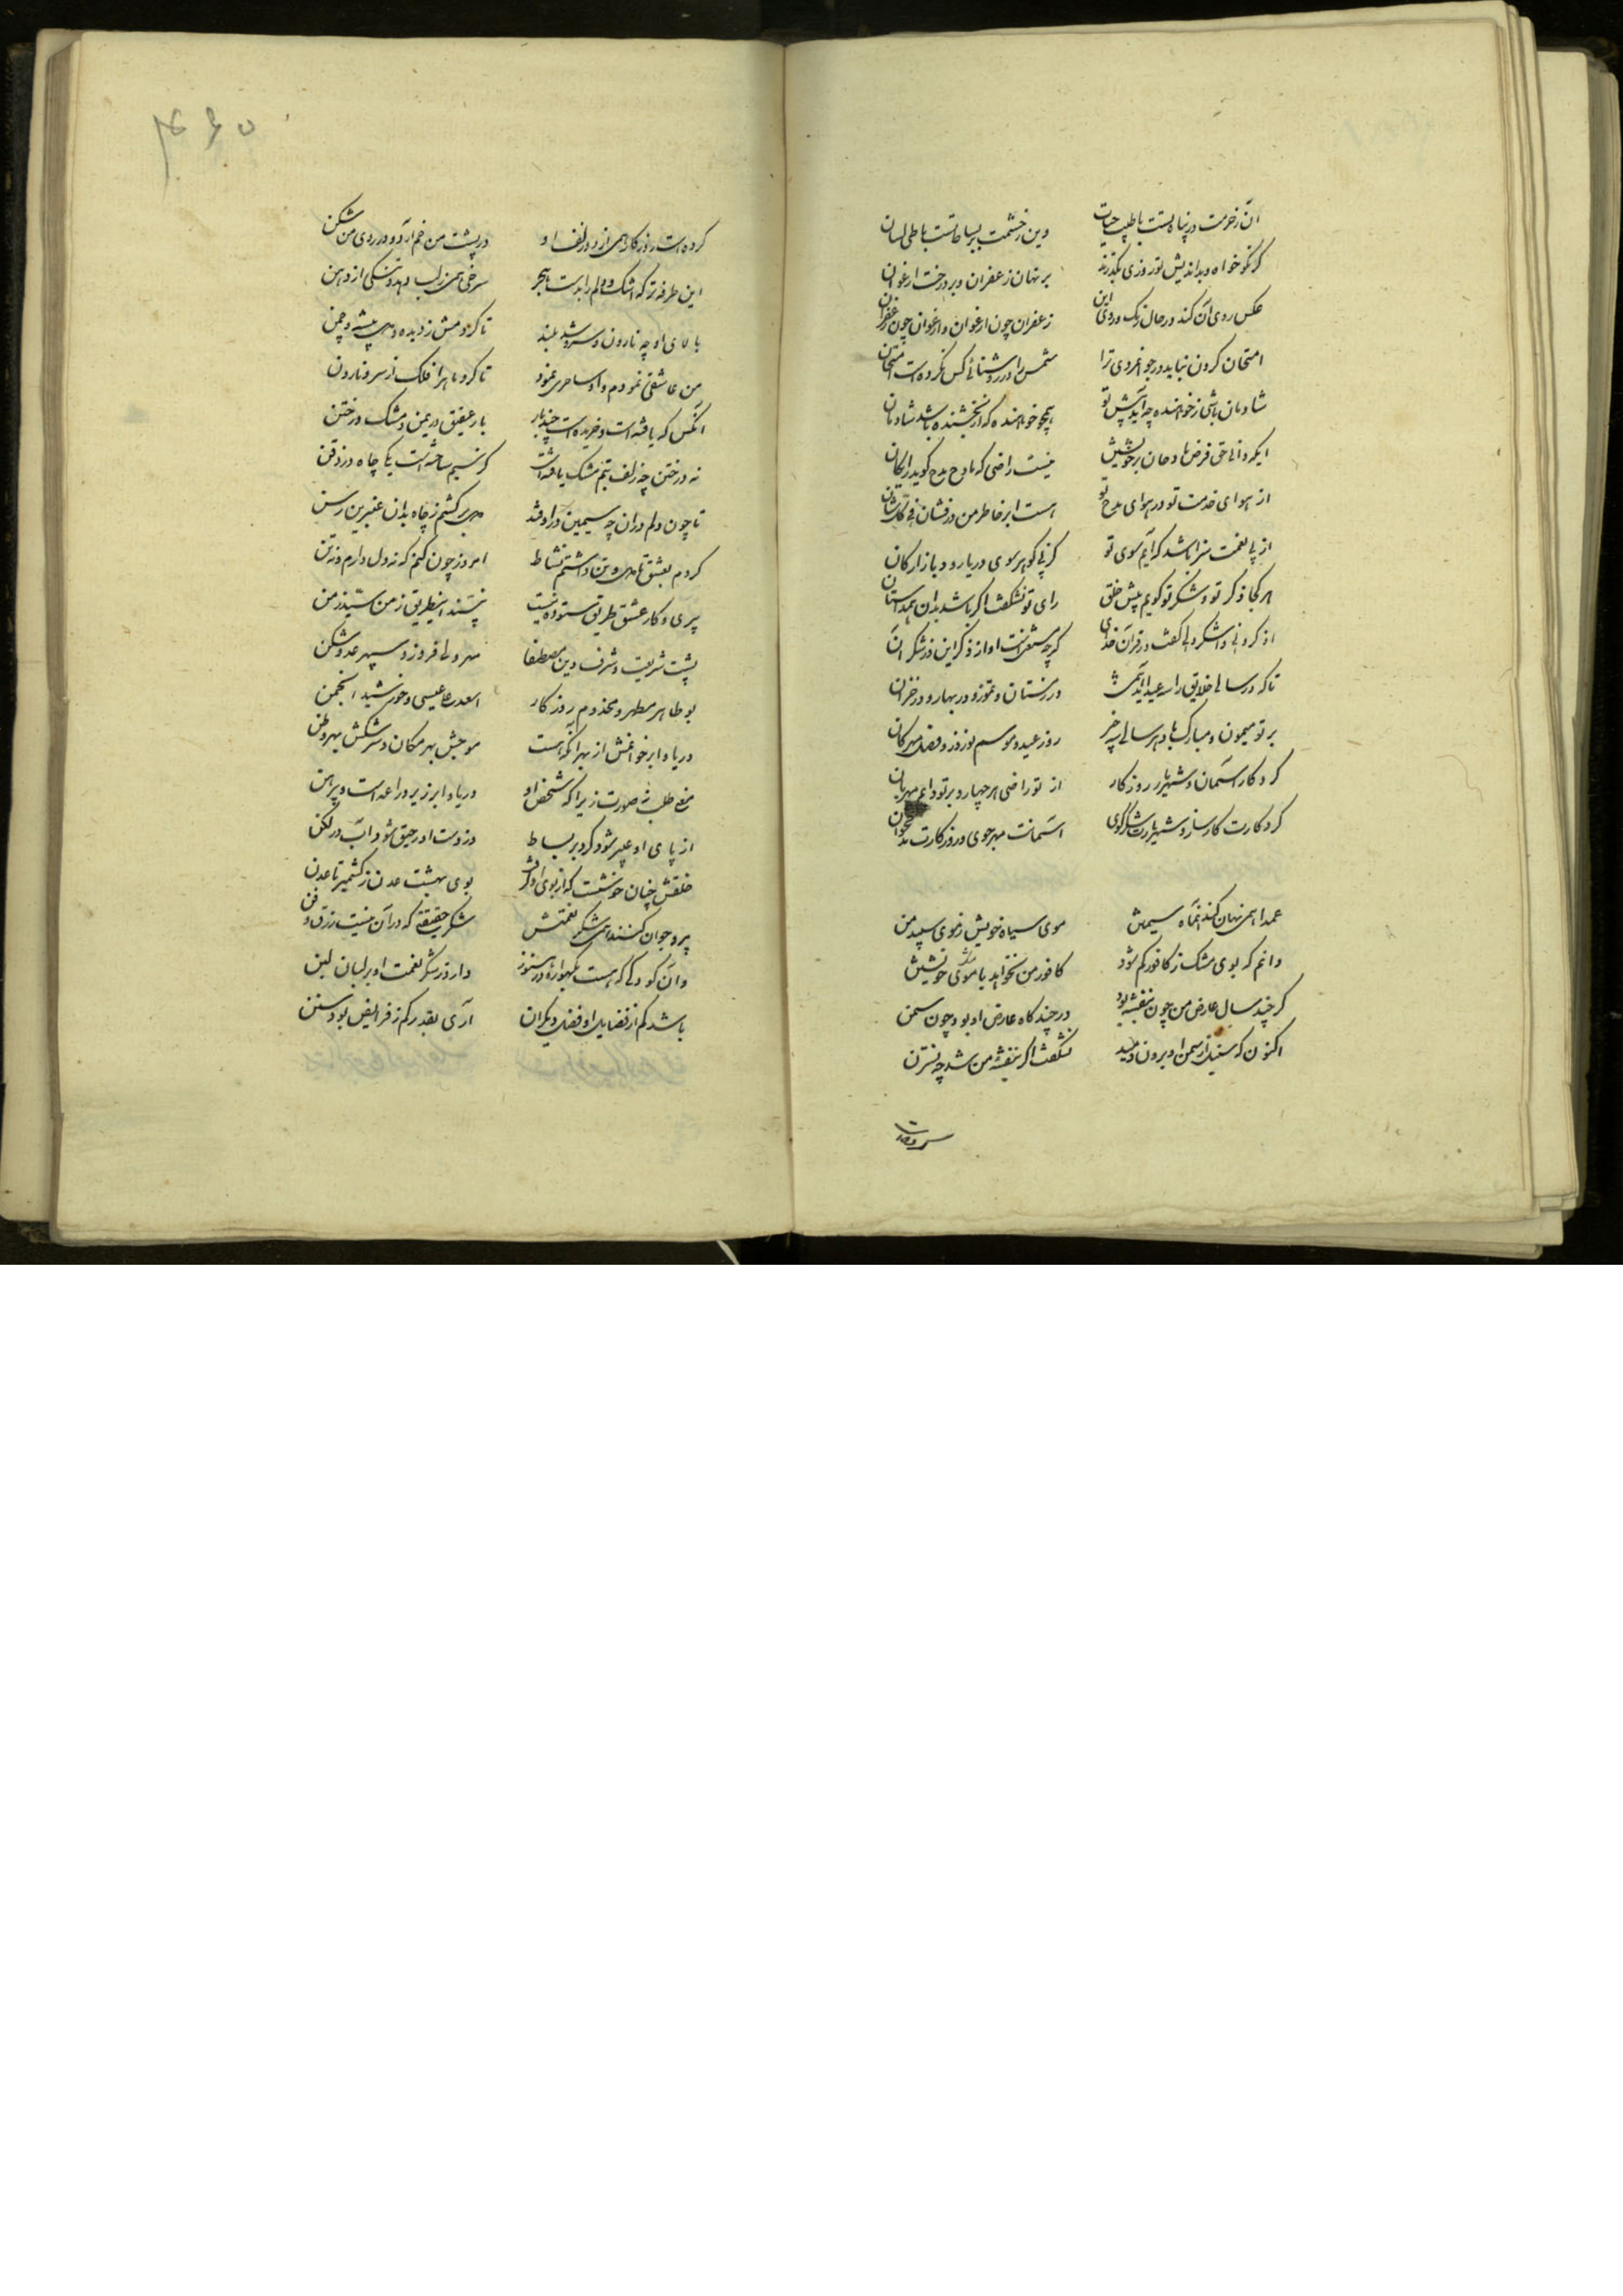 آن ز خرمت در پناه تست با طیب حیات
وین ز خشمت بر بساط تست با طی لسان
گر نکو خواه و بداندیش تو روزی بگذرند
بر نهان زعفران و بر درخت ارغوان
عکس روی آن کند در حال رنگ روی این
زعفران چون ارغوان و ارغوان چون زعفران
امتحان کردن نباید در جوانمردی ترا
شمس را در روشنائی کس نکرده است امتحان
شادمان باشی ز خواهنده چه آید پیش تو
همچو خواهنده که از بخشنده باشد شادمان
ایکه دانی حق فرض مادحان بر خویشتن
نیست راضی که مادح مدح گوید رایگان
از هوای خدمت تو در هوای مدح تو
هست ابر خاطر من درفشان
از پی نعمت سزا باشد که آیم سوی تو
کز پی گوهر سوی دریا رود بازارگان
هر کجا ذکر تو و شکر تو گویم پیش خلق
رای تو نشگفت اگر باشد بدان همداستان
اذکرونی واشکرولی گفت در قرآن خدای
گرچه مستغنیست او از ذکر این وز شکر آن
تا که در سالی خلایق را سه عید آید همی
در زمستان و تموز و در بهار و در خزان
بر تو میمون و مبارک باد هر سالی سه چیز
روز عید و موسم نوروز و فصل مهرگان
کردکار و آسمان و شهریار و روزگار
از تو راضی هر چهار و بر تو دایم مهربان
کردکارت کارساز و شهریارت شکرگوی
آسمانت مهرجوی و روزگارت مدح خوان
عمدا همی نهان کند آن ماه سیمتن
موی سیاه خویش ز موی سپید من
دانم که بوی مشک ز کافور کم شود
کافور من نخواهد با موی خویشتن
گر چند سال عارض من چون بنفشه بود
در چندگاه عارض او بود چون سمن
اکنون که سنبل از سمن او برون دمید
نشگفت اگر بنفشه من شد چه نسترن
کرده است روزگار همی از دو زلف او
در پشت من خم آرد و در روی من شکن
این طرفه تر که اشک و دلم را بدست هجر
سرخی همی ز لب دهد و تنگی از دهن
بالای او چه نارون و سرو شد بلند
تا کردمش ز دیده و دل بیشه و چمن
من عاشقی نمودم و او ساحری نمود
تا کرد ماه را فلک از سرو نارون
آنکس که یافته است و خریده است چند بار
بار عقیق در یمن و مشک در ختن
نه در ختن چه زلف بتم مشک یافته است
کز سیم ساخته است یکی چاه در ذقن
تا چون دلم در آن چه سیمین درافتد
دل برکشم ز چاه بدان عنبرین رسن
کردم بعشق تا دل و تن داشتم نشاط
امروز چون کنم که نه دل دارم و نه تن
پیری و کار عشق طریق ستوده نیست
نپسندد این طریق ز من سید ز من
پشت شریعت و شرف دین مصطفا
مهر ولی فروز و سپهر عدو شکن
بوطاهر مطهر و مخدوم روزگار
اسعد که عیسی و خورشید انجمن
دریا و ابر خوانمش از بهر آنکه هست
موجش بهر مکان و سرشکش بهر وطن
منع طلب نه صورت زیرا که شخص او
دریا و ابر زیر دراعه است و پیرهن
از پای او عبیر شود گرد بر بساط
وز دست او رحیق شود آب در لکن
خلقش چنان خوشست که از بوی او گرفت
بوی بهشت عدن ز کشمیر تا عدن
پیر و جوان کنند همی شکر نعمتش
شکر حقیقتی که در آن نیست زرق و فن
وان کودکی که هست بگهواره در هنوز
دارد ز شکر نعمت او بر لبان لبن
باشد کم از فضایل او فضل دیگران
آری بقدر کم ز فرایض بود سنن